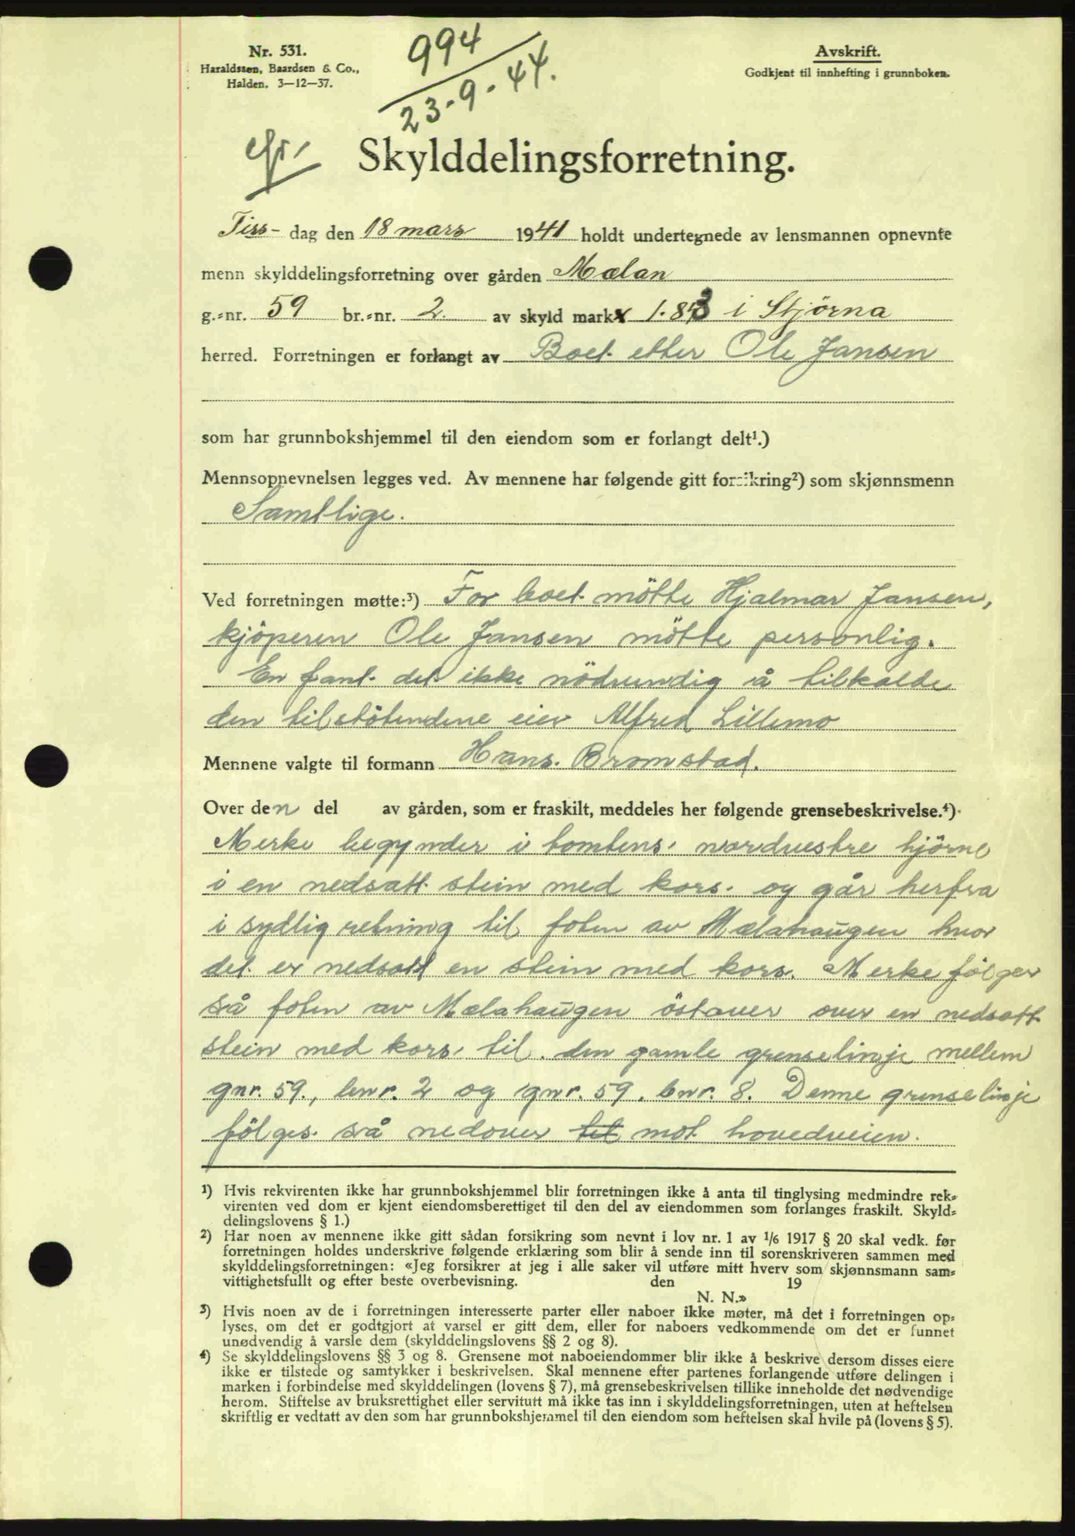 Nr. 531.
Haraldssen, Baardsen & Co.,
Halden. 3—12—37.
994
23-9-44.
Avskrift.
Godkjent til innhefting i grunnboken.
Skylddelingsforretning.
Tiss- dag den 18 mars 1941 holdt undertegnede av lensmannen opnevnte
menn skylddelingsforretning over gården Mælan
g.=nr. 59 br.=nr. 2 av skyld mark 1.83 i Stjörna
herred. Forretningen er forlangt av Boet etter Ole Jansen
som har grunnbokshjemmel til den eiendom som er forlangt delt¹.)
Mennsopnevnelsen legges ved. Av mennene har følgende gitt forsikring²) som skjønnsmenn
Samtlige.
Ved forretningen møtte:³) For boet mötte Hjalmar Jansen,
kjöperen Ole Jansen mötte personlig.
En fant det ikke nödvendig å tilkalde
den tilstötendene eier Alfred Lillemo
Mennene valgte til formann Hans Bromstad.
Over den del av gården, som er fraskilt, meddeles her følgende grensebeskrivelse.⁴)
Merke begynder i tomtens nordvestre hjörne
i en nedsatt stein med kors og går herfra
i sydlig retning til foten av Mælahaugen hvor
det er nedsatt en stein med kors. Merke fölger
så foten av Mælahaugen östover over en nedsatt
stein med kors til den gamle grenselinje mellem
gnr. 59, bnr. 2 og gnr. 59. bnr. 8. Denne grenselinje
fölges så nedover til mot hovedveien.
¹) Hvis rekvirenten ikke har grunnbokshjemmel blir forretningen ikke å anta til tinglysing medmindre rek=
virenten ved dom er kjent eiendomsberettiget til den del av eiendommen som forlanges fraskilt. Skyld=
delingslovens § 1.)
²) Har noen av mennene ikke gitt sådan forsikring som nevnt i lov nr. 1 av 1/6 1917 § 20 skal vedk. før
forretningen holdes underskrive følgende erklæring som blir å sende inn til sorenskriveren sammen med
skylddelingsforretningen: «Jeg forsikrer at jeg i alle saker vil utføre mitt hverv som skjønnsmann sam=
vittighetsfullt og efter beste overbevisning. den 19
N. N.»
³) Hvis noen av de i forretningen interesserte parter eller naboer ikke møter, må det i forretningen op=
lyses, om det er godtgjort at varsel er gitt dem, eller for naboers vedkommende om det er funnet
unødvendig å varsle dem (skylddelingslovens §§ 2 og 8).
⁴) Se skylddelingslovens §§ 3 og 8. Grensene mot naboeiendommer blir ikke å beskrive dersom disses eiere
ikke er tilstede og samtykker i beskrivelsen. Skal mennene efter partenes forlangende utføre delingen i
marken i forbindelse med skylddelingen (lovens § 7), må grensebeskrivelsen tillike inneholde det nødvendige
herom. Stiftelse av bruksrettighet eller servitutt må ikke tas inn i skylddelingsforretningen, uten at heftelsen
skriftlig er vedtatt av den som har grunnbokshjemmel til den eiendom som heftelsen skal hvile på (lovens § 5).